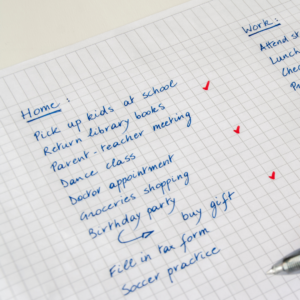 Home:
Pick up kids at school
Return library books
Parent-teacher meeting
Dance class
Doctor appointment
Groceries shopping
Birthday party
buy gift
Fill in tax form
Soccer practice
Work:
Attend
Lunch